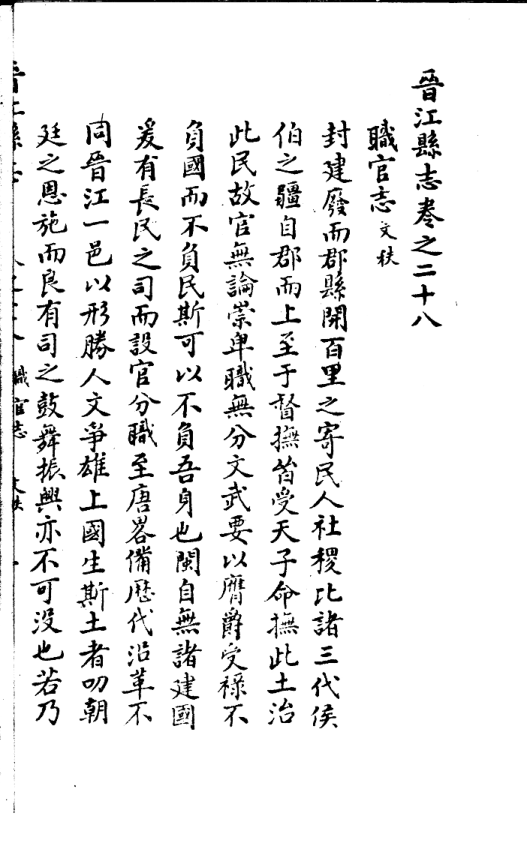 晉江縣志卷之二十八
職官志 文秩
封建廢而郡縣開百里之寄民人社稷比諸三代侯
伯之疆自郡而上至于督撫皆受天子命撫此土治
此民故官無論崇卑職無分文武要以膺爵受祿不
負國而不負民斯可以不負吾身也閩自無諸建國
爰有長民之司而設官分職至唐畧備歷代沿革不
同晉江一邑以形勝人文爭雄上國生斯土者叨朝
廷之恩施而良有司之鼓舞振興亦不可没也若乃
職官志 文秩 一